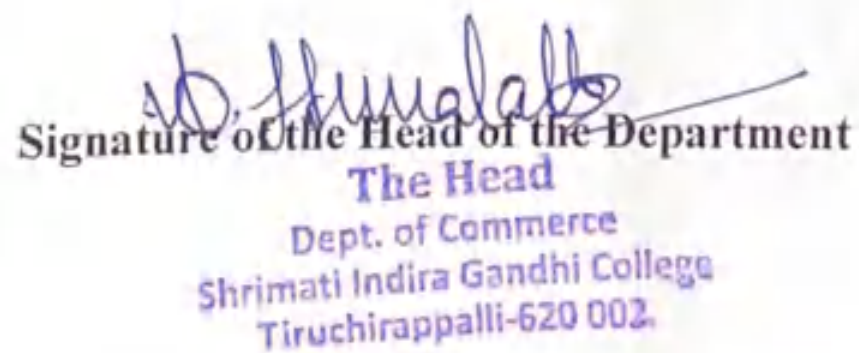 Signature of the Head of the Department
The Head
Dept. of Commerce
Shrimati Indira Gandhi College
Tiruchirappalli-620 002.